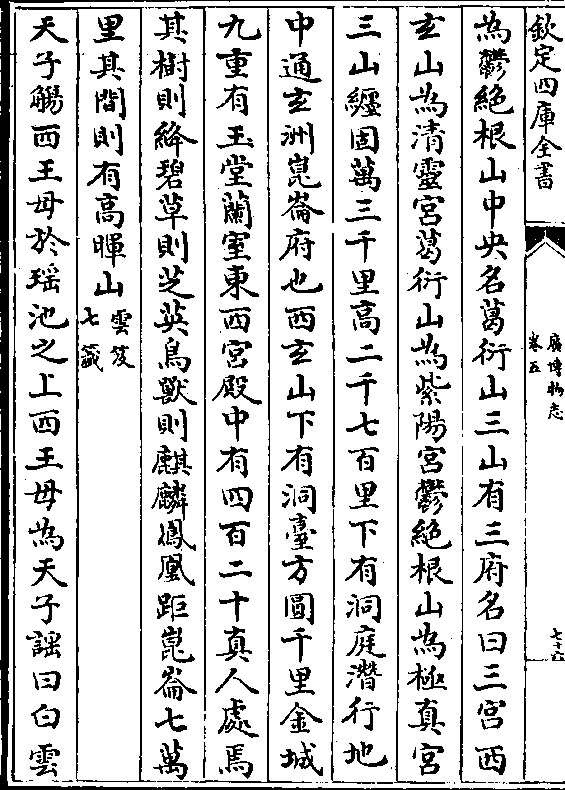 欽定四庫全書
廣博物志
卷五
七十六
為鬱絶根山中央名葛衍山三山有三府名曰三宫西
玄山為清靈宫葛衍山為紫陽宫鬱絶根山為極真宫
三山纒固萬三千里高二千七百里下有洞庭潛行地
中通玄洲崑崙府也西玄山下有洞臺方圓千里金城
九重有玉堂蘭室東西宫殿中有四百二十真人處焉
其樹則絳碧草則芝英鳥獸則麒麟鳳凰距崑崙七萬
里其間則有高暉山雲笈七籤
天子觴西王母於瑶池之上西王母為天子謡曰白雲